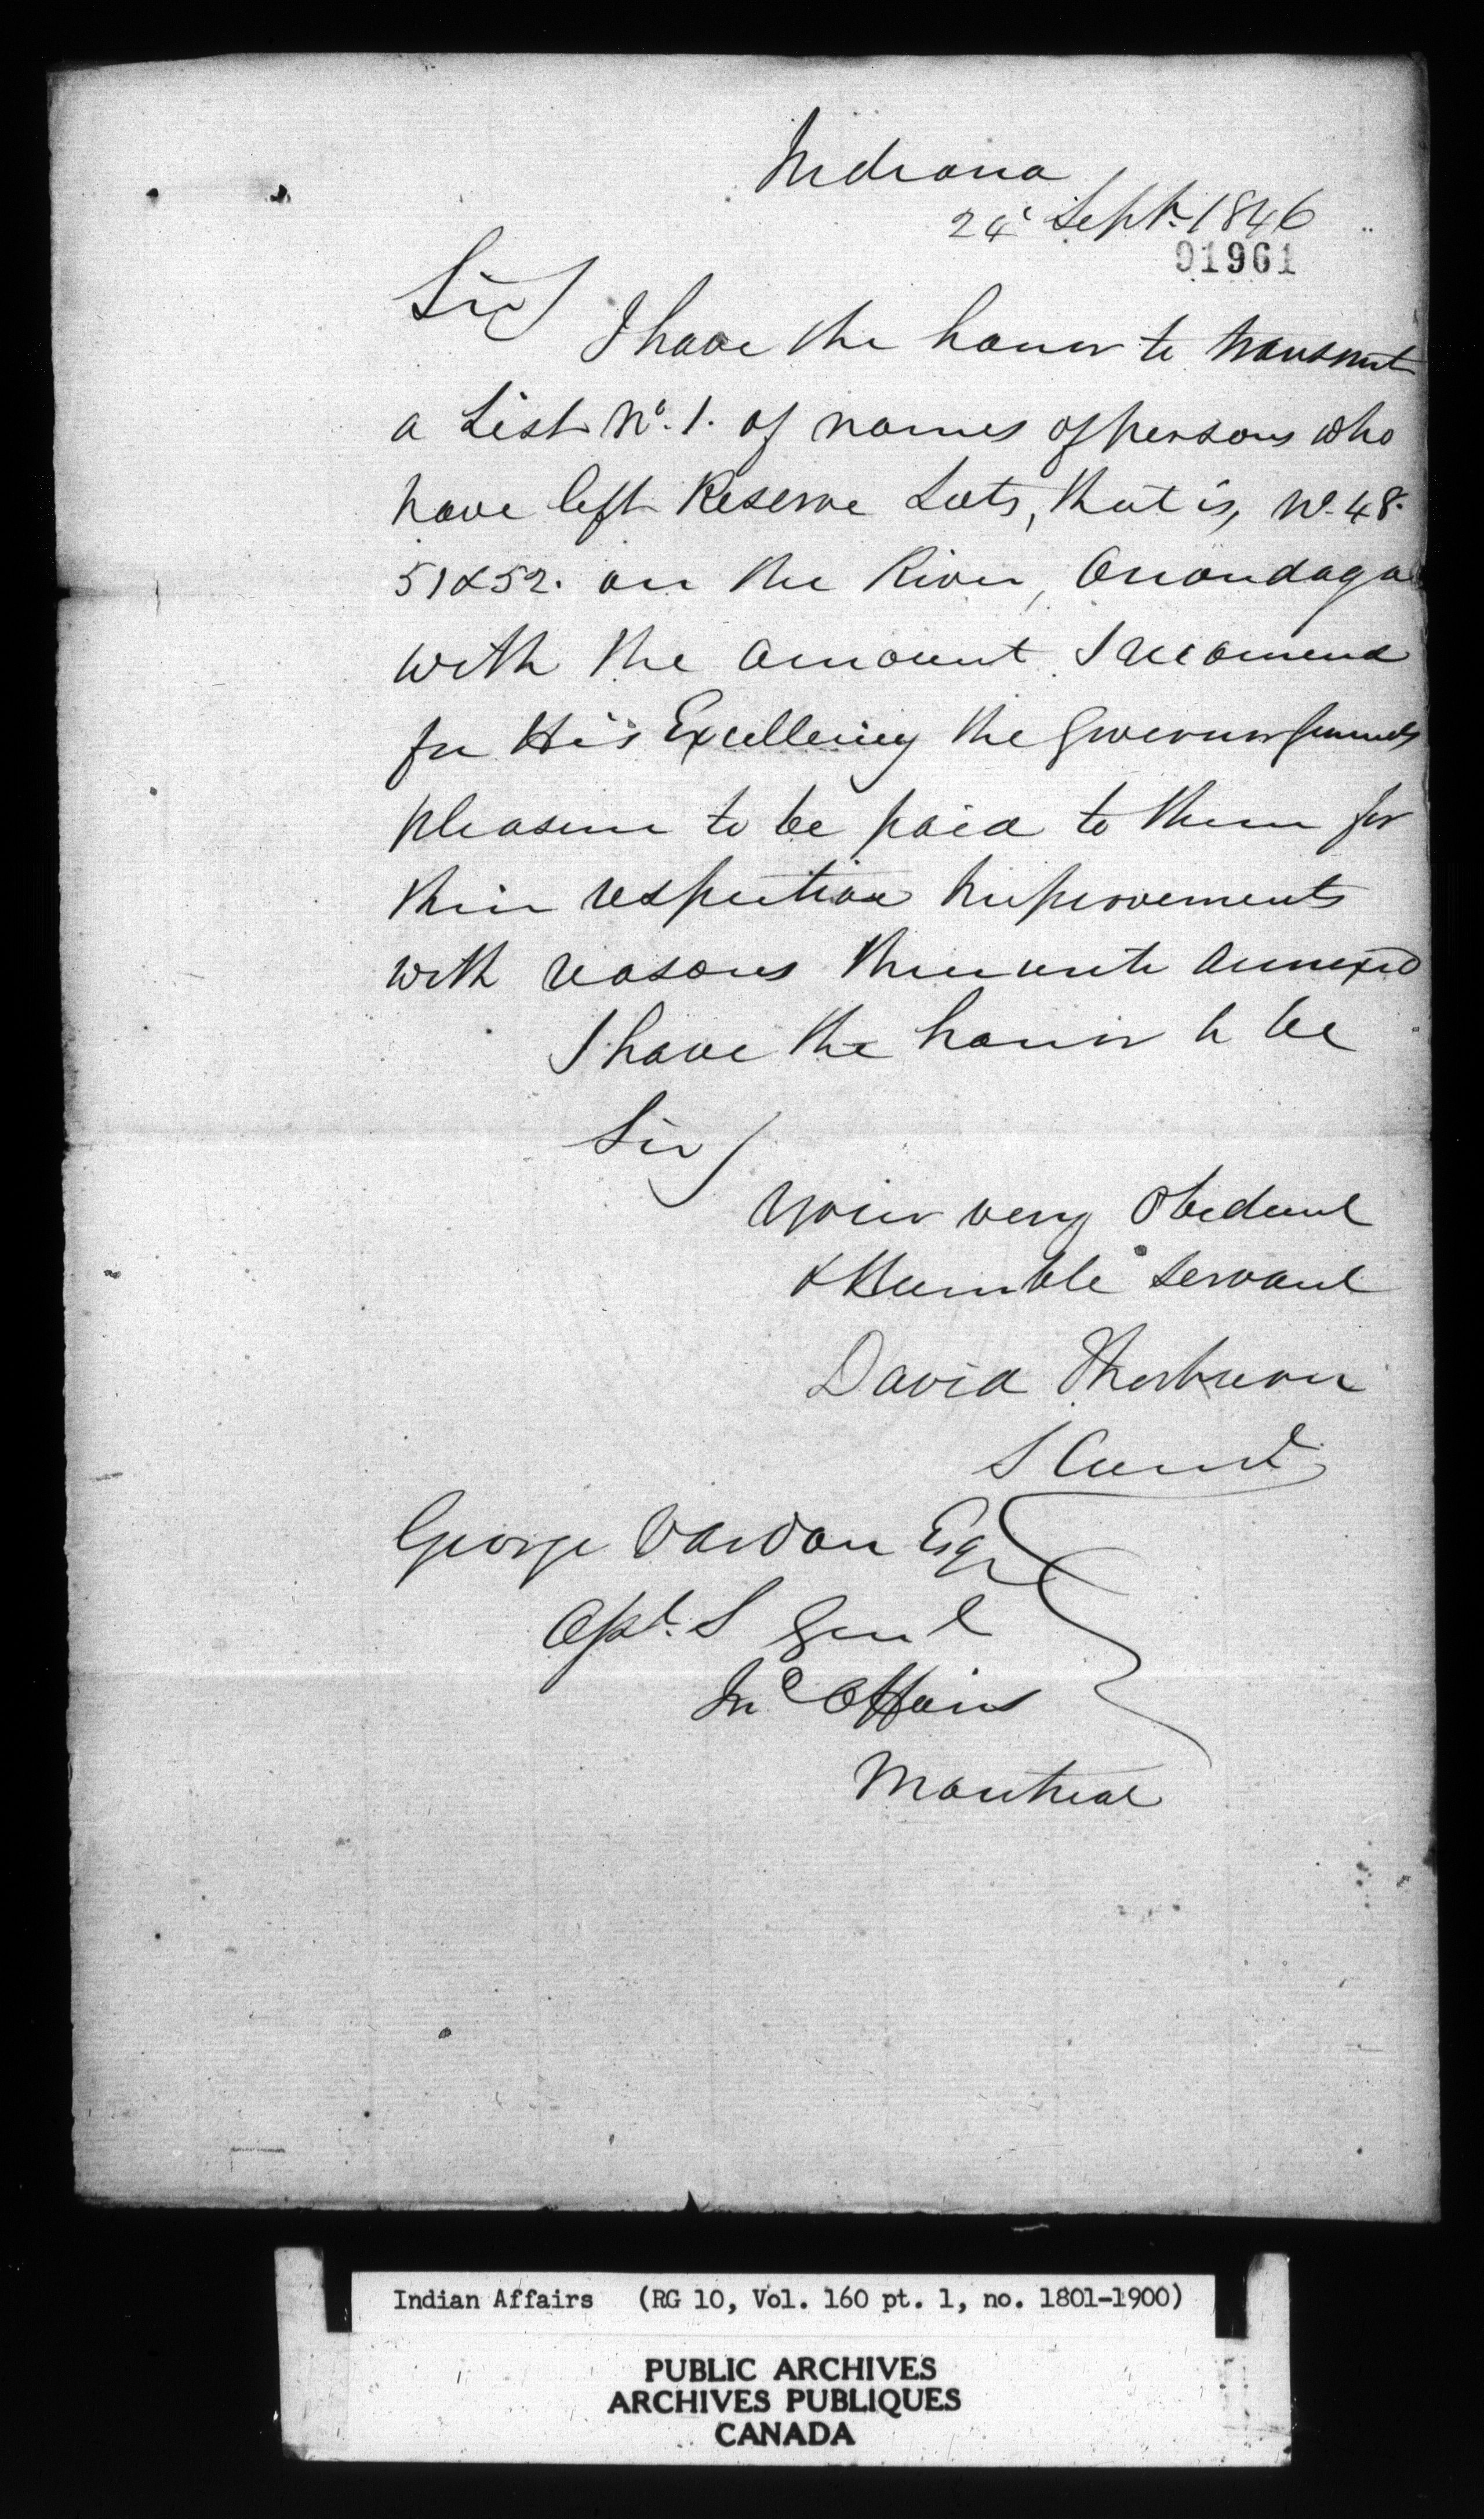 Indiana
24 Septr. 1846
91961
Sir/
I have the honor to transmit
a List No. 1. of names of persons who
have left Reserve Lots, that is, No. 48.
51 & 52. on the River, Onondaga
with the amount I recomend
for His Excellency the Governor Generals
pleasure to be paid to them for
their respective Improvements
with reasons thereunto annexed
I have the honor to be
Sir/
Your very Obedient
& Humble Servant
David Thorburn
George Vardon Esqr
Apt. S Genl
Inn Affairs
Montreal
Indian Affairs (RG 10, Vol. 160 pt. 1, no. 1801-1900)
PUBLIC ARCHIVES
ARCHIVES PUBLIQUES
CANADA